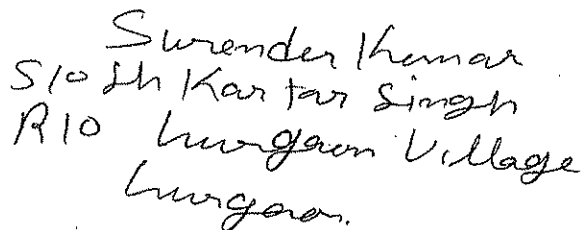 Surender Kumar
S/o Sh Kartar Singh
R/o Gurgaon Village
Gurgaon.